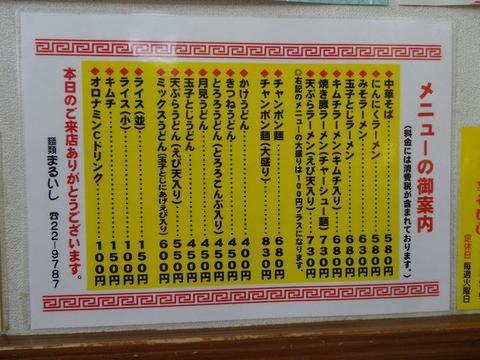 メニューの御案内
(料金には消費税が含まれております。)
◆中華そば 580円
◆にんにくラーメン 580円
◆みそラーメン 630円
◆玉子とじラーメン 680円
◆キムチラーメン(キムチ入り) 680円
◆焼き豚ラーメン(チャーシュー麺) 730円
◆天ぷらラーメン(えび天入り) 730円
◎右記のメニューの大盛りは100円プラスになります。
◆チャンポン麺 680円
◆チャンポン麺(大盛り) 830円
◆かけうどん 400円
◆きつねうどん 450円
◆とろろうどん(とろろこんぶ入り) 400円
◆月見うどん 450円
◆玉子とじうどん 450円
◆天ぷらうどん(えび天入り) 550円
◆ミックスうどん(玉子とじにあげえび入り) 600円
◆ライス(並) 150円
◆ライス(小) 100円
◆キムチ 150円
◆オロナミンCドリンク 100円
本日のご来店ありがとうございます。
麺類 まるいし ☎22-9787
定休日 毎週火曜日